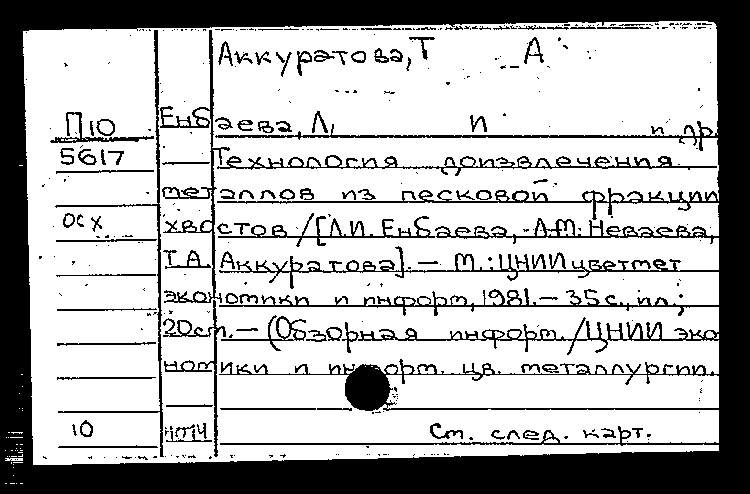 Аккуратова, Т А
П10 Енбаева, Л. И и др.
5617 Технология доизвлечения
металлов из песковой фракции
осх хвостов /[Л.И. Енбаева, А.М. Неваева,
Т.А. Аккуратова]. — М.: ЦНИИцветмет
экономики и информ, 1981. — 35 с., ил.;
20см. — (Обзорная информ. /ЦНИИ эко
номики и информ. цв. металлургии.
10 Ст. след. карт.